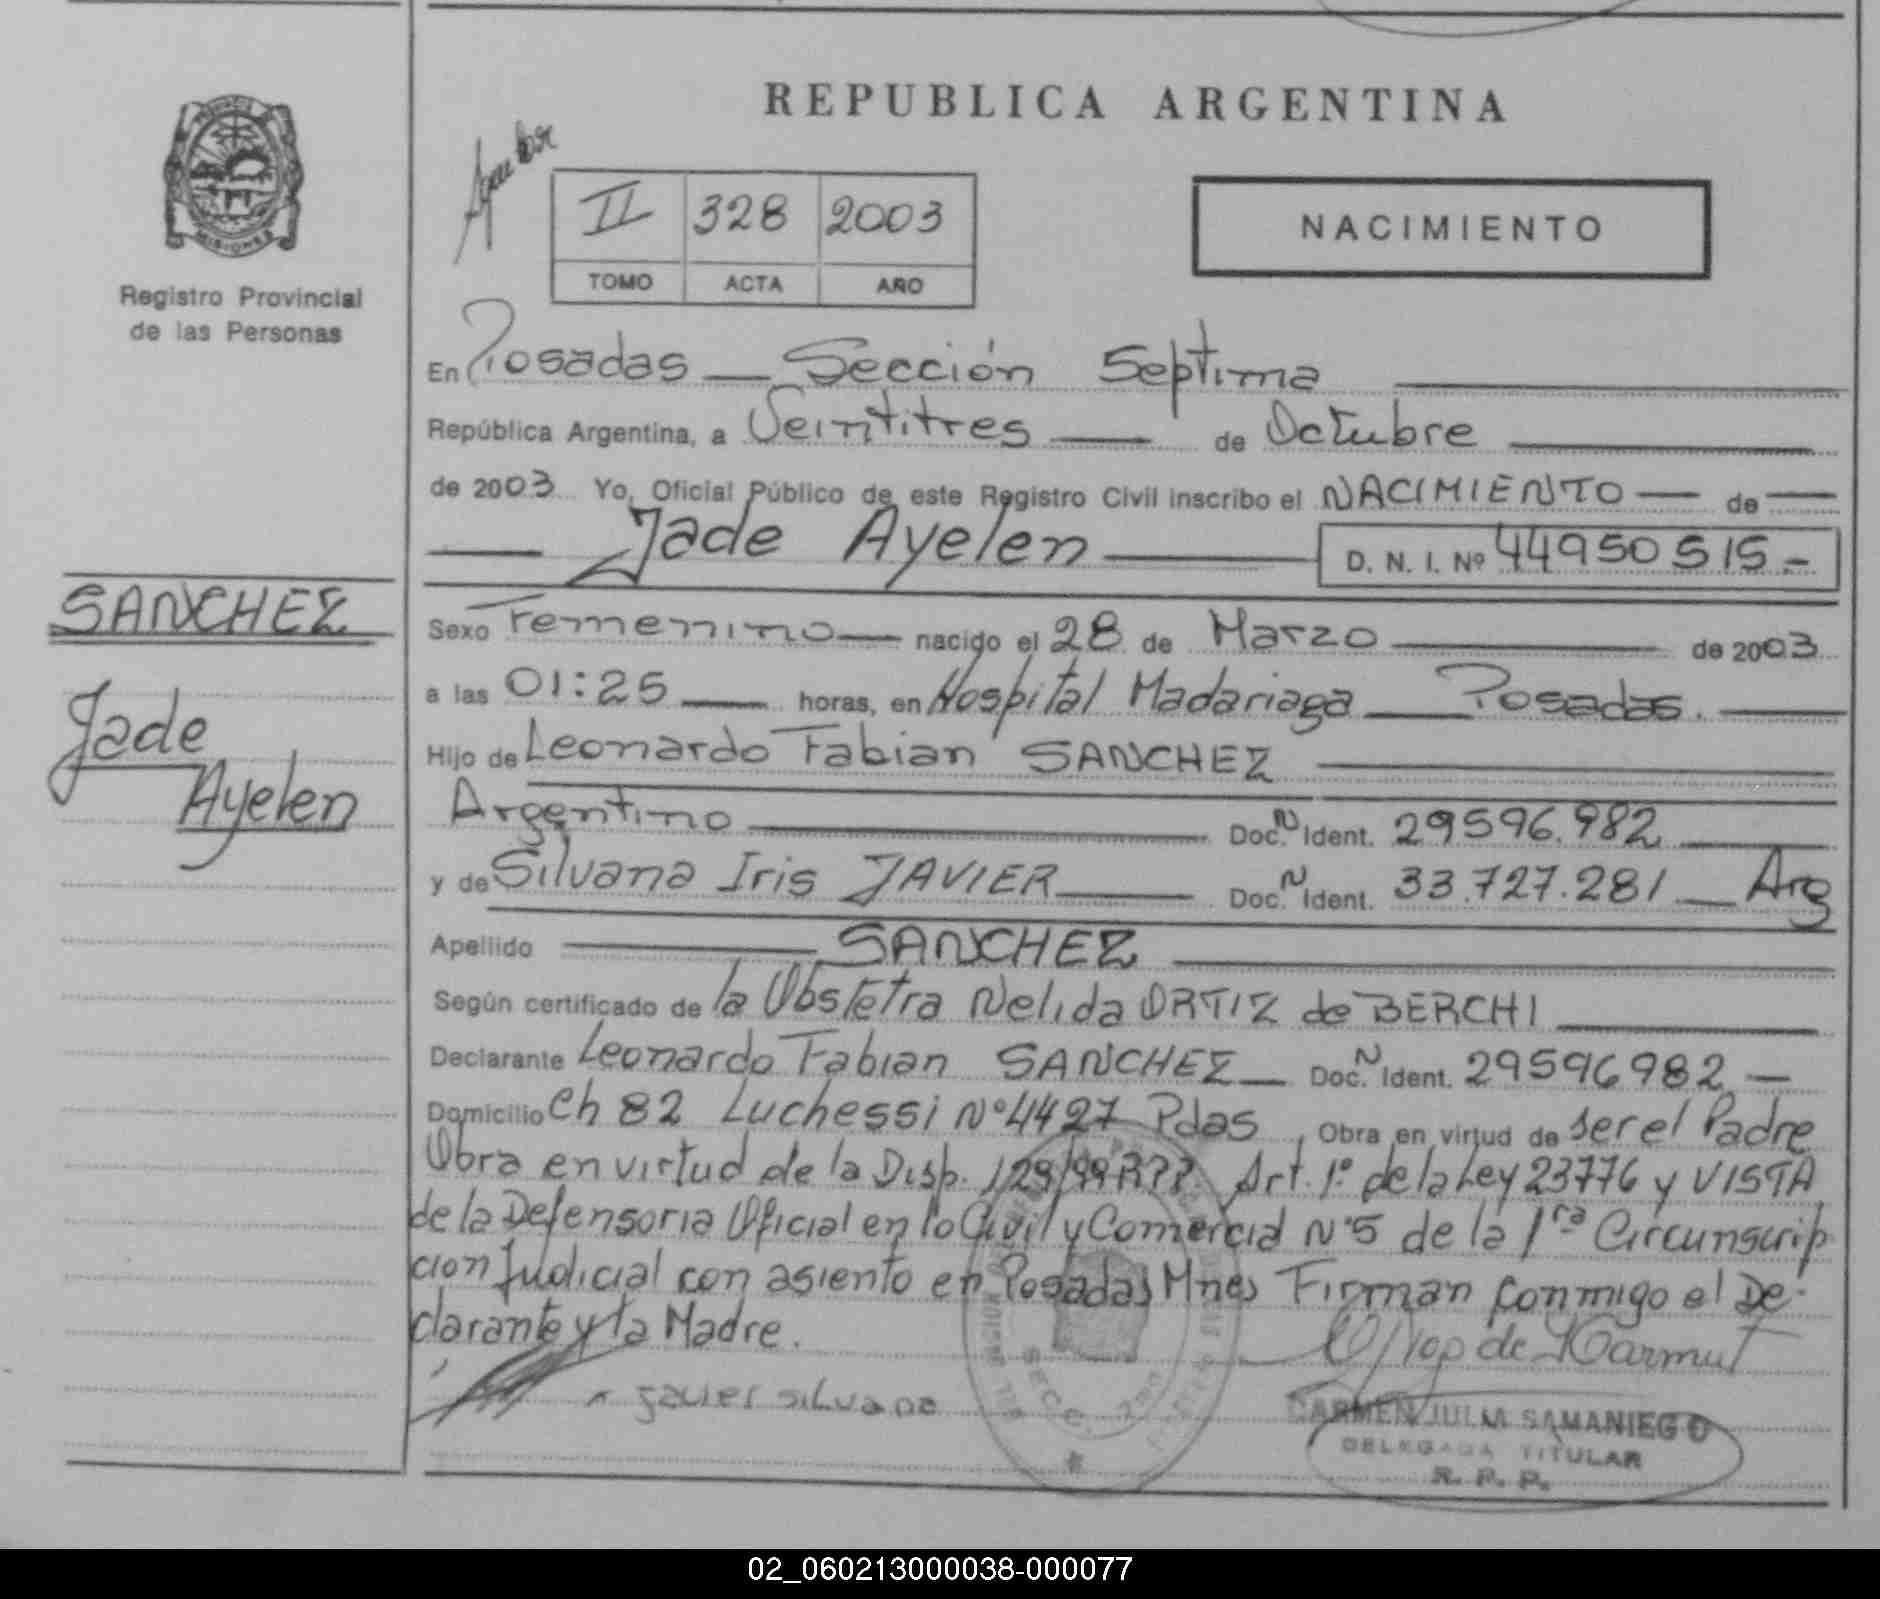 REPUBLICA ARGENTINA
MISIONES
Registro Provincial
de las Personas
II 328 2003
TOMO ACTA AÑO
NACIMIENTO
En Posadas — Sección Septima
República Argentina, a Veintitres — de Octubre
de 2003 Yo, Oficial Público de este Registro Civil inscribo el NACIMIENTO — de —
Jade Ayelen — D. N. I. Nº 44950515 -
SANCHEZ
Jade
Ayelen
Sexo Femenino — nacido el 28 de Marzo — de 2003
a las 01:25 — horas, en Hospital Madariaga — Posadas. —
Hijo de Leonardo Fabian SANCHEZ —
Argentino — Doc. N Ident. 29596.982 —
y de Silvana Iris JAVIER — Doc. N Ident. 33.727.281 — Arg
Apellido — SANCHEZ —
Según certificado de la Obstetra Nelida ORTIZ de BERCHI —
Declarante Leonardo Fabian SANCHEZ — Doc. N Ident. 29596982 —
Domicilio Ch 82 Luchessi Nº 4427 Pdas, Obra en virtud de ser el Padre
Obra en virtud de la Disp. 129/99 Art. 1º de la Ley 23776 y VISTA
de la Defensoria Oficial en lo Civil y Comercial Nº5 de la 1ra Circunscrip
cion Judicial con asiento en Posadas Mnes Firman conmigo el De-
clarante y la Madre.
Javier Silvana
CARMEN JULIA SAMANIEGO
DELEGADA TITULAR
R. P. P.
02_060213000038-000077